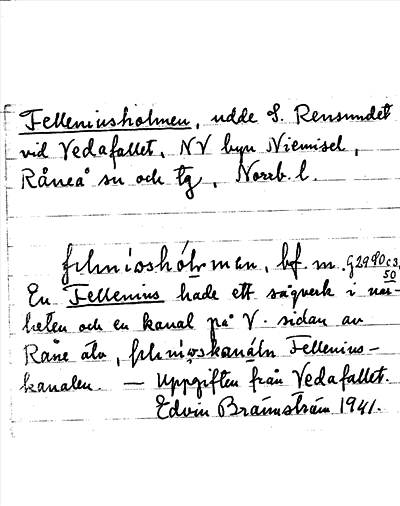 Felleniusholmen, udde S. Rensundet
vid Vedafallet, NV byn Niemisel,
Råneå sn och tg, Norrb. l.
bf. m.
En Fellenius hade ett sågverk i när-
heten och en kanal på V. sidan av
Råne älv, Fellenius-
kanalen. — Uppgiften från Vedafallet.
Edvin Brännström 1941.